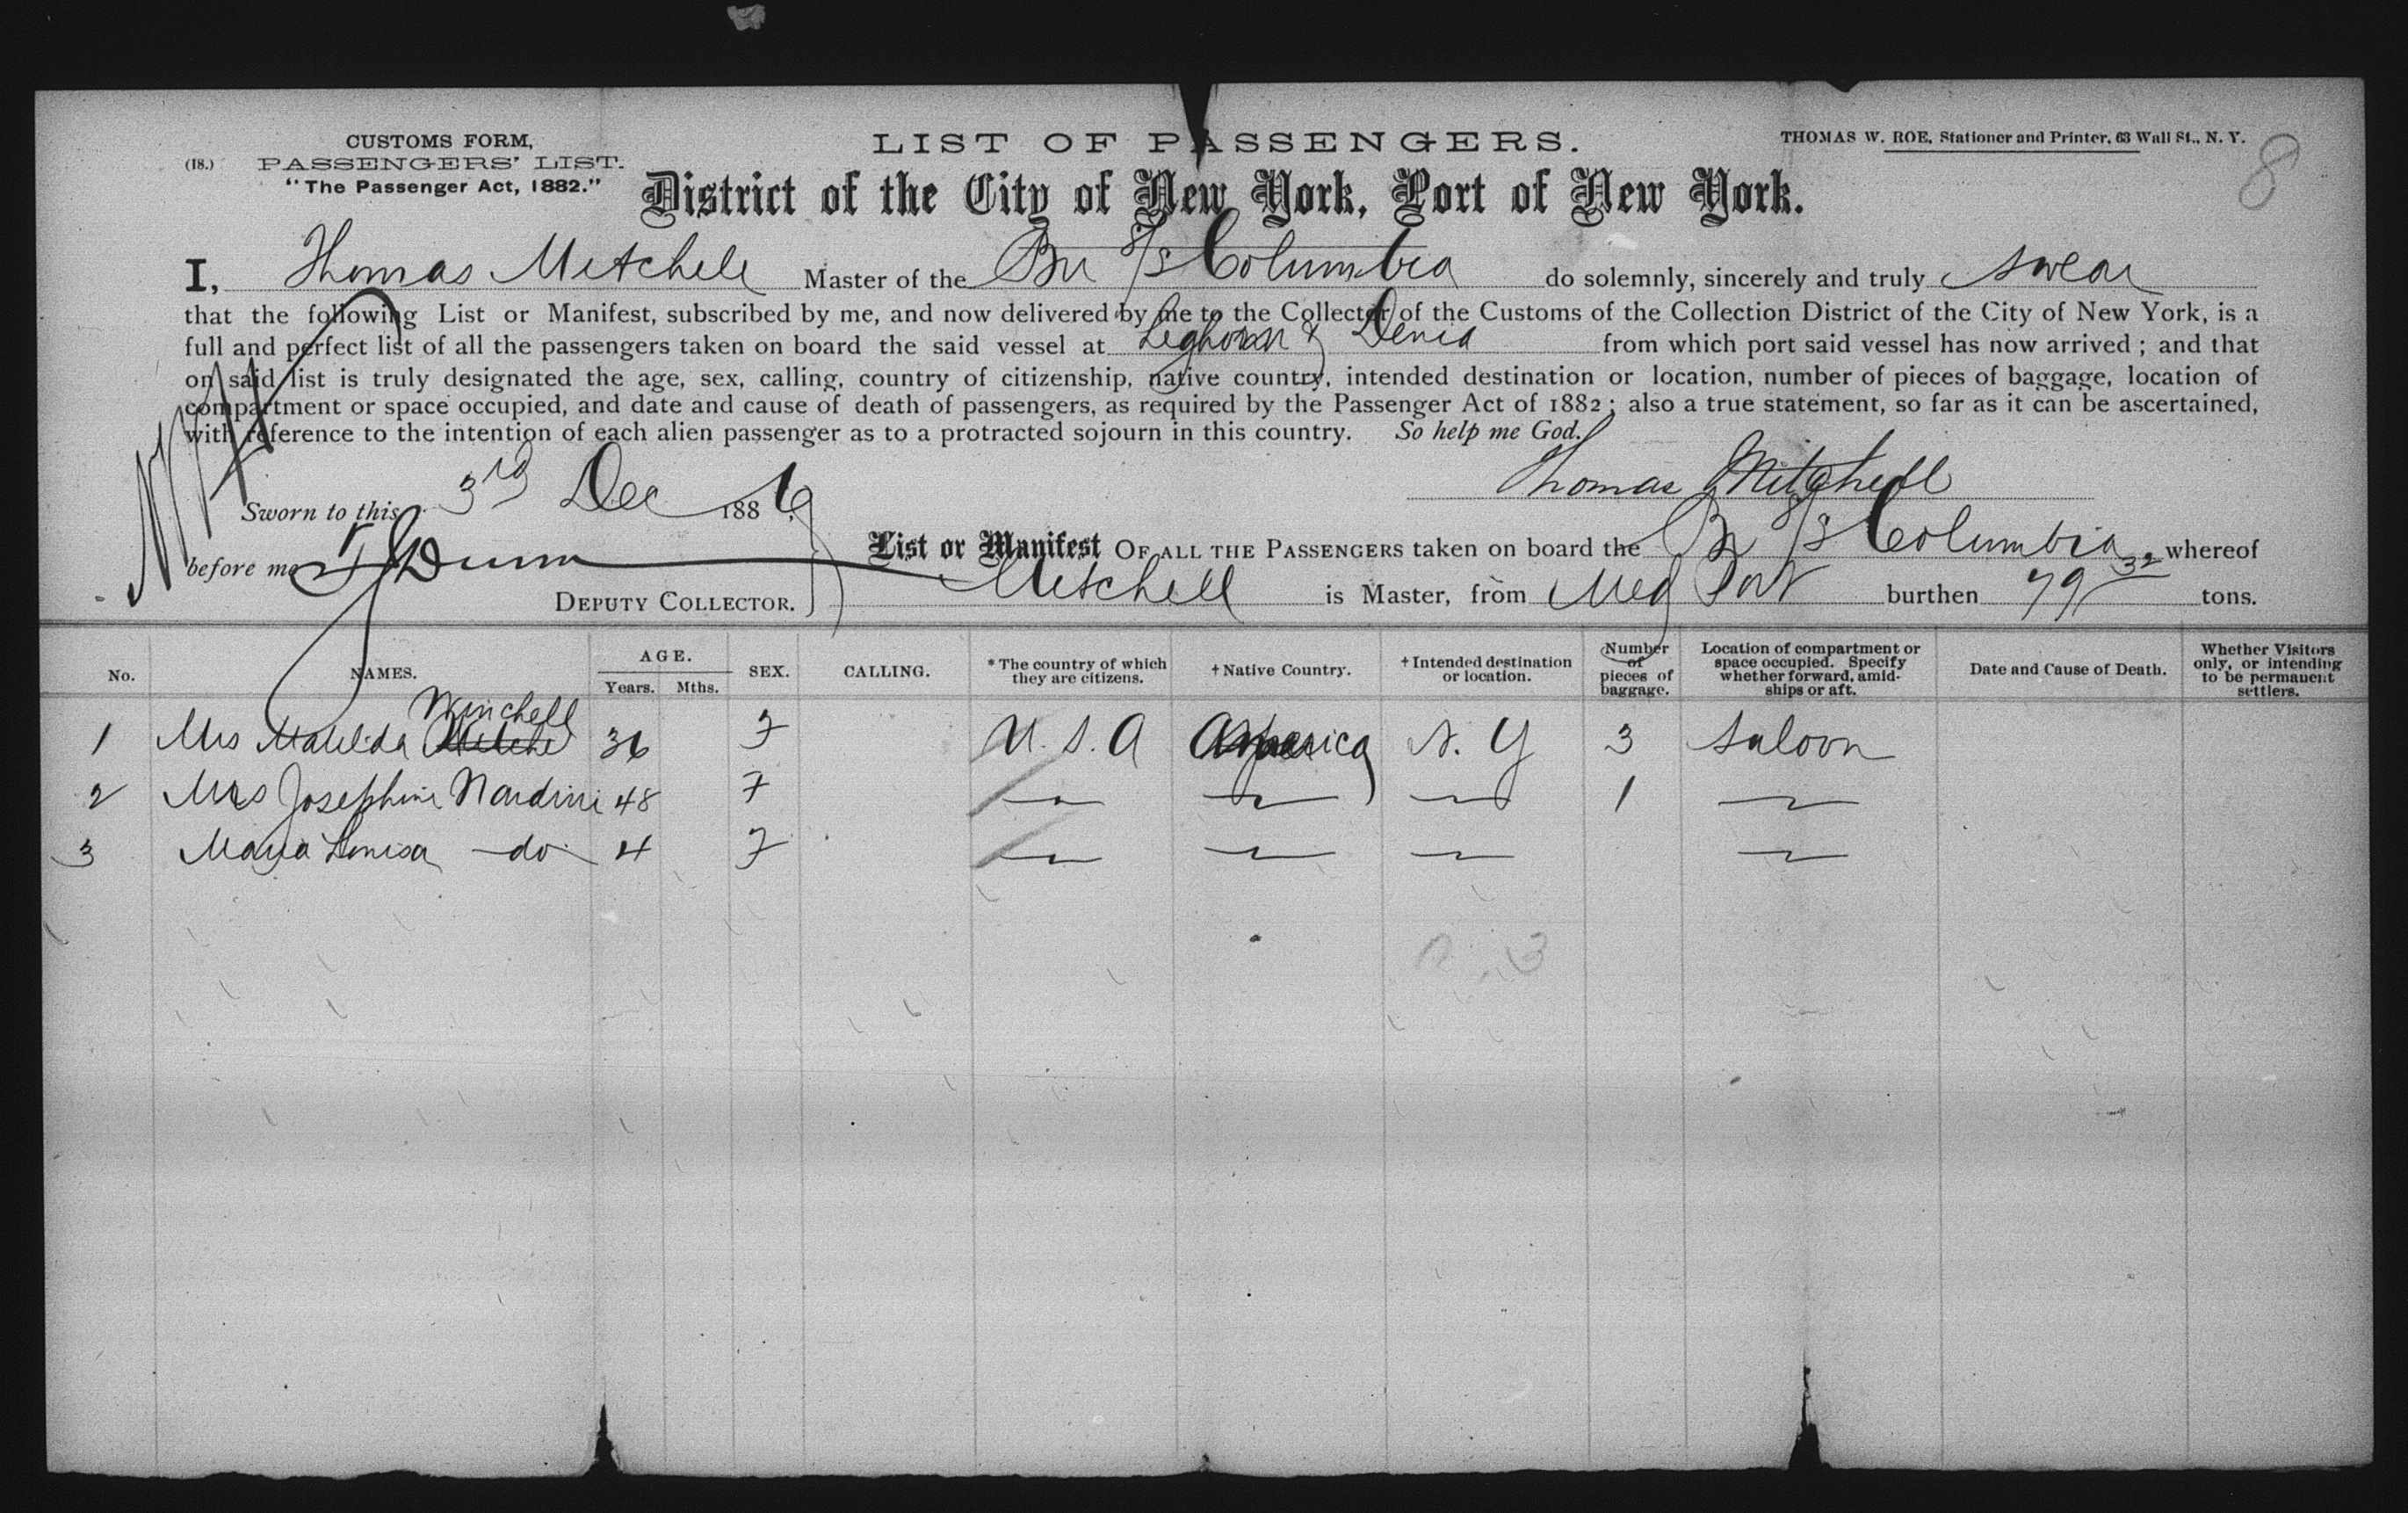 CUSTOMS FORM,
(18.) PASSENGERS' LIST.
"The Passenger Act, 1882."
LIST OF PASSENGERS.
THOMAS W. ROE, Stationer and Printer, 63 Wall St., N. Y.
8
District of the City of New York, Port of New York.
I, Thomas Mitchell Master of the Br S/S Columbia do solemnly, sincerely and truly swear
that the following List or Manifest, subscribed by me, and now delivered by me to the Collector of the Customs of the Collection District of the City of New York, is a
full and perfect list of all the passengers taken on board the said vessel at Leghorn & Denia from which port said vessel has now arrived; and that
on said list is truly designated the age, sex, calling, country of citizenship, native country, intended destination or location, number of pieces of baggage, location of
compartment or space occupied, and date and cause of death of passengers, as required by the Passenger Act of 1882; also a true statement, so far as it can be ascertained,
with reference to the intention of each alien passenger as to a protracted sojourn in this country. So help me God.
Thomas Mitchell
Sworn to this 3rd Dec 1886,
before me Dunn
DEPUTY COLLECTOR.
List or Manifest OF ALL THE PASSENGERS taken on board the Br S/S Columbia whereof
Mitchell is Master, from Med Port burthen 79 32 tons.
No. NAMES. AGE. Years. Mths. SEX. CALLING. *The country of which they are citizens. †Native Country. †Intended destination or location. Number of pieces of baggage. Location of compartment or space occupied. Specify whether forward, amid-ships or aft. Date and Cause of Death. Whether Visitors only, or intending to be permanent settlers.
Winchell
1 Mrs Matilda 36 F U. S. A America N. Y 3 Saloon
2 Mrs Josephine Nardini 48 F 1
3 Maria Louisa do 4 F
3